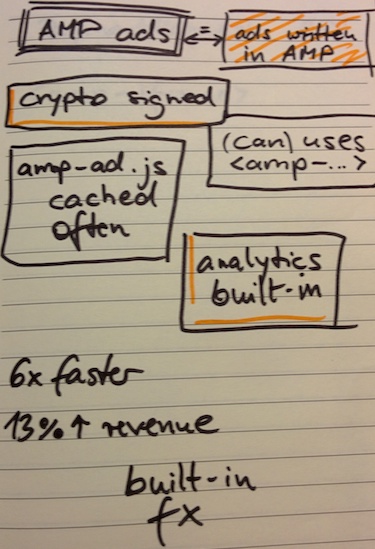 AMP ads <=> ads written
in AMP
crypto signed
(can) uses
<amp-...>
amp-ad.js
cached
often
analytics
built-in
6x faster
13%↑ revenue
built-in
fx